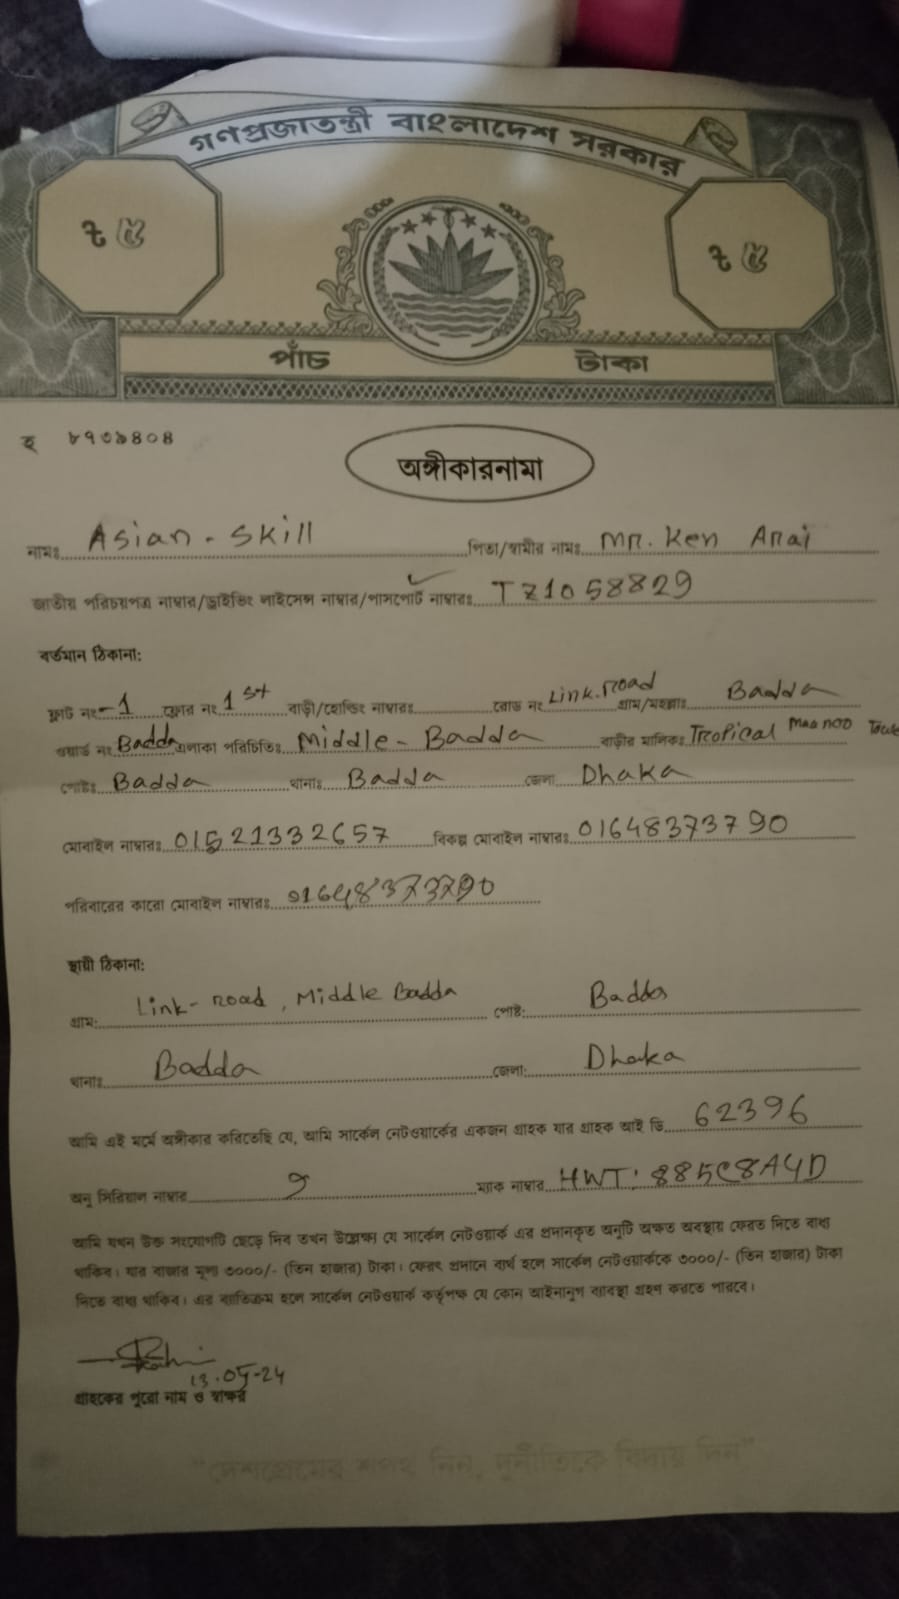 গণপ্রজাতন্ত্রী বাংলাদেশ সরকার
৳ ৫ ৳ ৫
পাঁচ টাকা
হ ৮৭৩৯৪০৪
অঙ্গীকারনামা
নামঃ Asian - Skill পিতা/স্বামীর নামঃ MR. Ken Arai
জাতীয় পরিচয়পত্র নাম্বার/ড্রাইভিং লাইসেন্স নাম্বার/পাসপোর্ট নাম্বারঃ TZ1058829
বর্তমান ঠিকানা:
ফ্লাট নং- 1 ফ্লোর নং 1st বাড়ী/হোল্ডিং নাম্বারঃ রোড নং Link-road গ্রাম/মহল্লাঃ Badda
ওয়ার্ড নং Badda এলাকা পরিচিতিঃ Middle-Badda বাড়ীর মালিকঃ Tropical
পোষ্টঃ Badda থানাঃ Badda জেলা: Dhaka
মোবাইল নাম্বারঃ 01521332657 বিকল্প মোবাইল নাম্বারঃ 01648373790
পরিবারের কারো মোবাইল নাম্বারঃ 01648373790
স্থায়ী ঠিকানা:
গ্রাম: Link-road, Middle Badda পোষ্ট: Badda
থানাঃ Badda জেলা: Dhaka
আমি এই মর্মে অঙ্গীকার করিতেছি যে, আমি সার্কেল নেটওয়ার্কের একজন গ্রাহক যার গ্রাহক আই ডি 62396
অনু সিরিয়াল নাম্বার ম্যাক নাম্বার HWT: 885C8A4D
আমি যখন উক্ত সংযোগটি ছেড়ে দিব তখন উল্লেক্ষ্য যে সার্কেল নেটওয়ার্ক এর প্রদানকৃত অনুটি অক্ষত অবস্থায় ফেরত দিতে বাধ্য
থাকিব। যার বাজার মূল্য ৩০০০/- (তিন হাজার) টাকা। ফেরৎ প্রদানে ব্যর্থ হলে সার্কেল নেটওয়ার্ককে ৩০০০/- (তিন হাজার) টাকা
দিতে বাধ্য থাকিব। এর ব্যতিক্রম হলে সার্কেল নেটওয়ার্ক কর্তৃপক্ষ যে কোন আইনানুগ ব্যবস্থা গ্রহণ করতে পারবে।
13.05-24
গ্রাহকের পুরো নাম ও স্বাক্ষর
"দেশপ্রেমের শপথ নিন, দুর্নীতিকে বিদায় দিন"